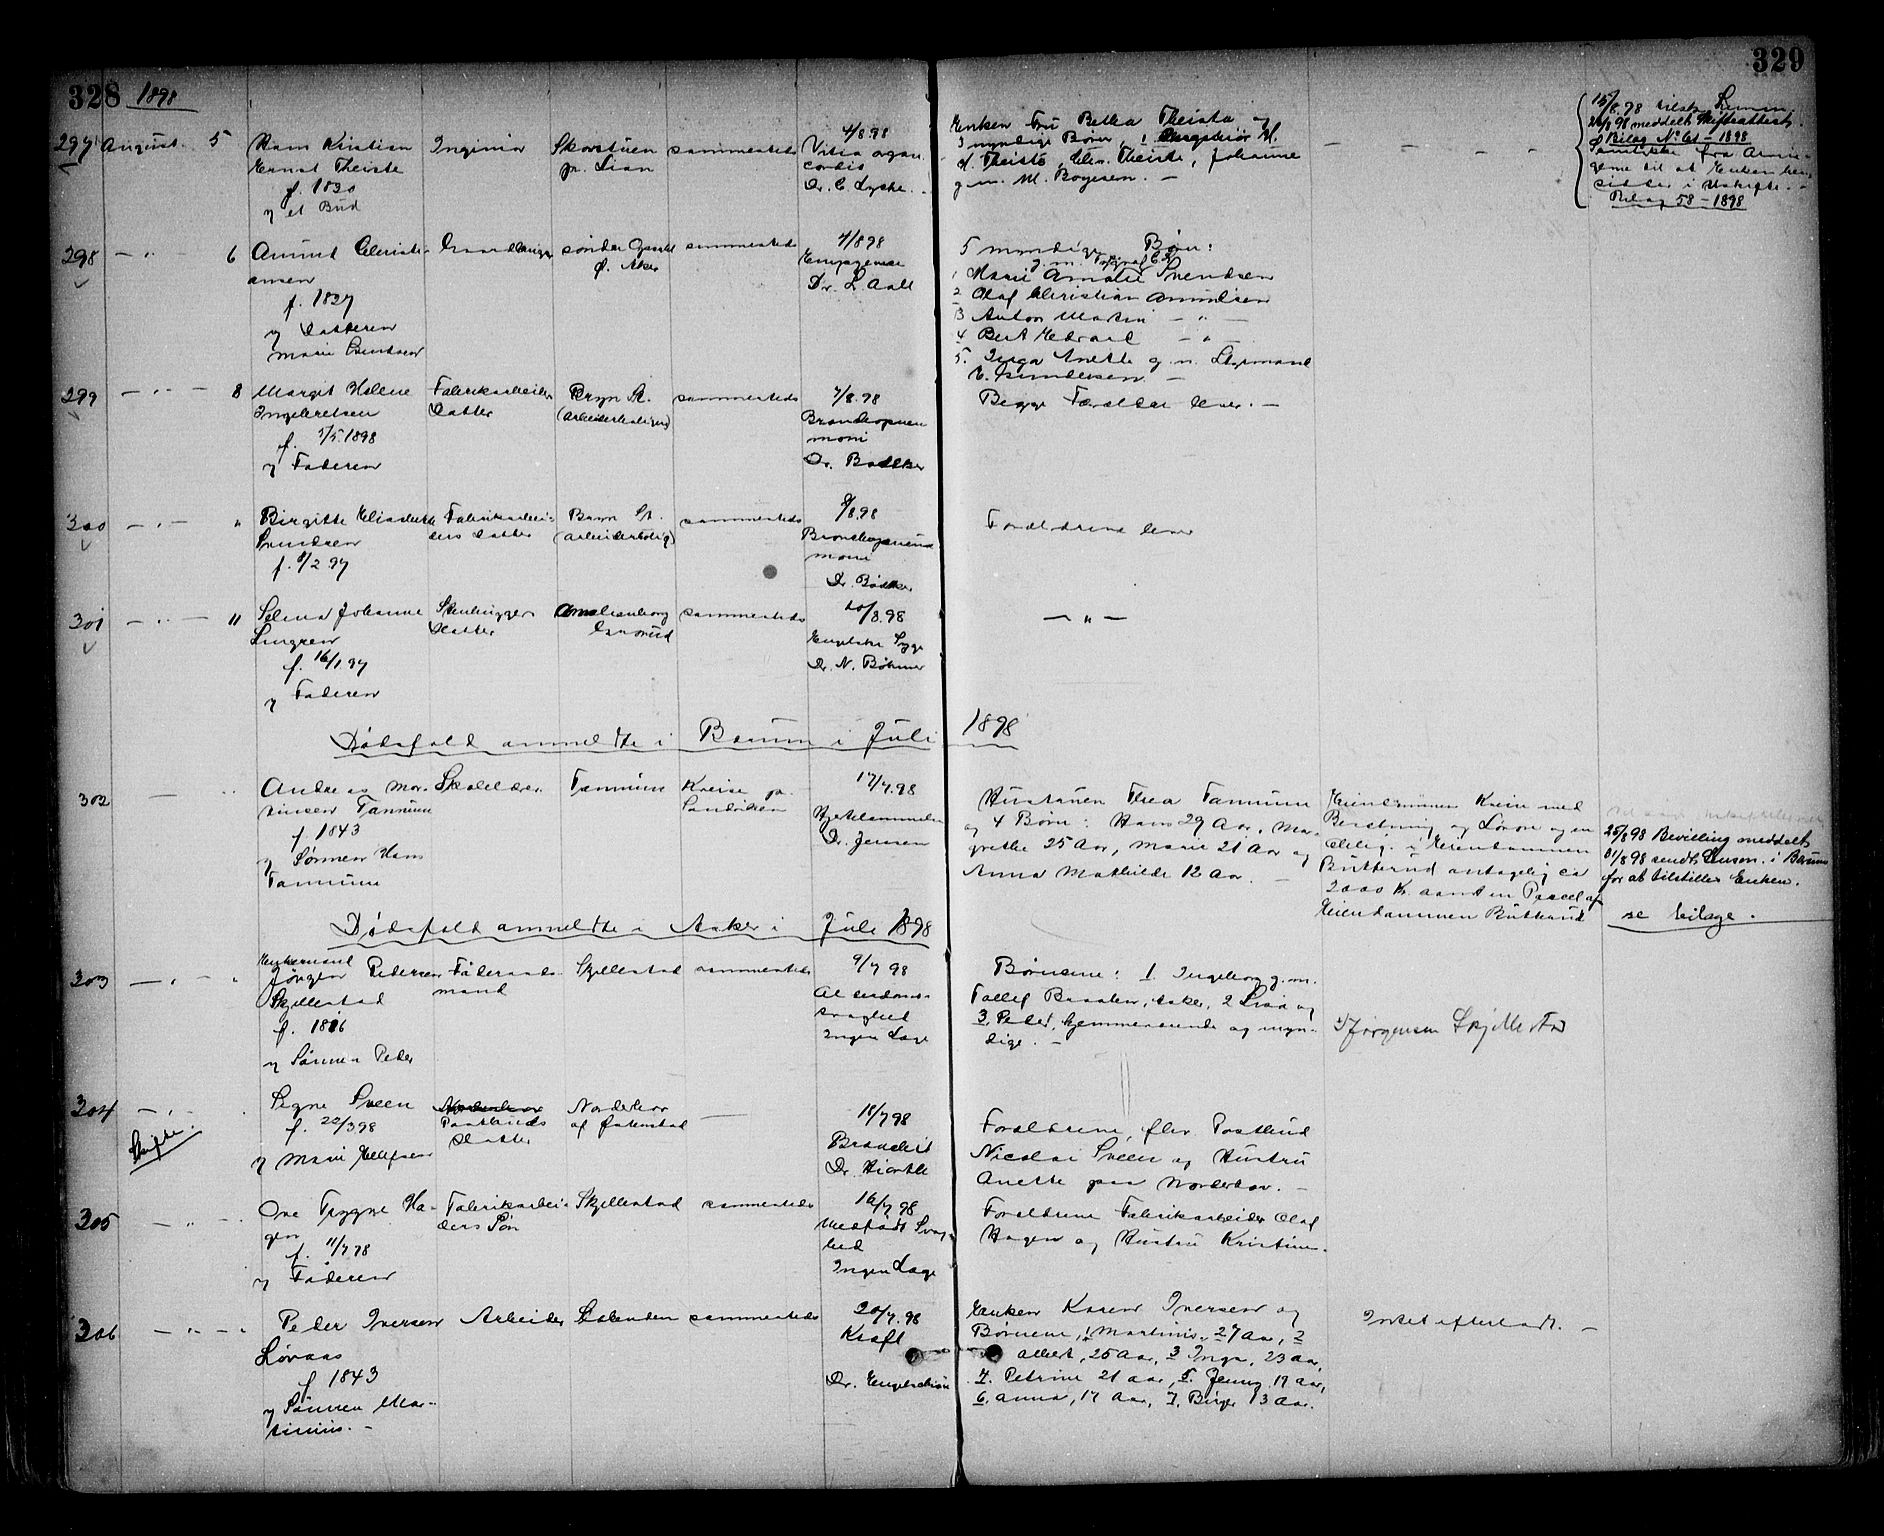 328 1898
329
297 August 5
Hans Kristian
Ernst Theiste
f. 1830
v et Bud
Ingeniør
Skovstuen
pr. Lian
sammesteds
4/8 98
Vitia organ.
cordis
Dr. C Lyche.
Enken Fru Betha Theiste og
3 myndige Børn, 1
d. Theiste, Chr. Theiste, Johanne
g. m. M. Boyesen. —
15/8 98 tilst. Lensm.
meddelt Skifteattest.
Bilag No 61 - 1898
Samtykke fra Arvin-
gerne til at Enken hen-
sidder i Uskifte. -
Bilag 58 - 1898
298 — " — 6
Amund Christi-
ansen
f. 1827
v Datteren
Marie Svendsen
søndre
Ø. Aker
sammesteds
4/8 98
Empyema
Dr. L Aall
5 myndige Børn:
1 Marie Amalie Svendsen
2 Olaf Christian Amundsen
3 Anton Martin — " —
4 Bert Edvard — " —
5. Inga Anette g. m. Styrmand
E. Gundersen —
299 — " — 8
Margit Helene
Ingebretsen
f. 1/5 1898
v Faderen
Fabrikarbeider
Datter
Bryn St.
(Arbeiderboligen)
sammesteds
7/8.98
Bronkopneu
moni
Dr. Bødtker
Begge Forældre lever. —
300 — " — "
Birgitte Elisabeth
Svendsen
f. 8/2 97
Fabrikarbei-
ders Datter
Bryn St.
(Arbeiderbolig)
sammesteds
9/8.98
Bronchopneu
moni
Dr. Bødtker
Forældrene lever
301 — " — 11
Selma Johanne
Lingren
f. 16/1 97
v Faderen
Stenhugger
Datter
Amalienborg
Grorud
sammesteds
10/8.98
Engelske Syge
Dr. N. Bøhmer
— " —
Dødsfald anmeldte i Bærum i Juli 1898
302 —
Andreas Mor-
tinsen Tannum
f. 1843
v Sønnen Hans
Tannum
Skolelærer
Tannum
Kreise pr.
Sandviken
17/7.98
Hjertelammelse
Dr. Jensen
Hustruen Thea Tannum
og 4 Børn: Hans 29 Aar, Mar-
grethe 25 Aar, Marie 21 Aar og
Anna Mathilde 12 Aar. —
Eiendommen Kreise med
Besætning og Løsøre og en
Butterud antagelig ca
2000 Kr. samt en Parcel af
Eiendommen Butterud
25/8 98 Bevilling meddelt
31/8 98 sendt Lensm. i Bærum
for at tilstilles Enken.
se bilage.
Dødsfald anmeldte i Asker i Juli 1898
303 — " — "
Enkemand
Jørgen Pedersen
Skjellestad
f. 1816
v Sønnen Peder
Føderaads-
mand
Skjellestad
sammesteds
9/7 98
Alderdoms-
svaghed
Ingen Læge
Børnene: 1. Ingeborg g. m.
Tollef Baalen, Asker, 2 Lisa og
3. Peder, hjemmeværende og myn-
dige. —
Jørgensen Skjellestad
304 — " —
Skifte.
Signe Sveen
f. 22/3 98
v Marie Ellefsen
Postbuds
Datter
Norderhov
—
18/7 98
Bronchit
Dr. Hiorth
Forældrene, fhv. Postbud
Nicolai Sveen og Hustru
Anette paa Norderhov. —
305 — " —
Ove Trygve Ha-
gen
f. 11/7 98
v Faderen
Fabrikarbei-
ders Søn
Skjellestad
sammesteds
16/7 98
Medfødt Svag-
hed
Ingen Læge
Forældrene Fabrikarbeider Olaf
Hagen og Hustru Kristine.
306 — " —
Peder Iversen
Løvaas
f. 1843
v Sønnen Mar-
tinius. —
Arbeider
sammesteds
20/7.98
Kræft
Dr. Engelschiøn
Enken Karen Iversen og
Børnene, 1 Martinius, 27 Aar, 2
Albert, 25 Aar, 3 Inga, 23 Aar,
4. Petrine 21 Aar, 5. Jenny 19 Aar,
6. Anna, 17 Aar, 7. Birger 13 Aar.
Intet efterladt. —